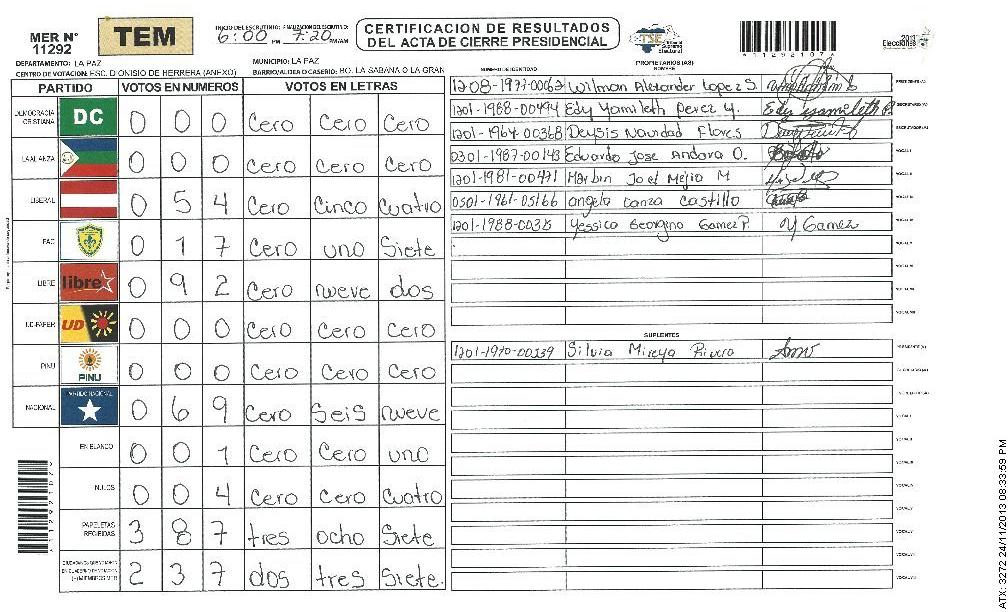 MER N° 11292
TEM
INICIO DEL ESCRUTINIO: FINALIZACION DEL ESCRUTINIO:
6:00 PM 7:20 PM/AM
CERTIFICACION DE RESULTADOS
DEL ACTA DE CIERRE PRESIDENCIAL
TSE Tribunal Supremo Electoral
A11292107A
2013
Elecciones
DEPARTAMENTO: LA PAZ
MUNICIPIO: LA PAZ
CENTRO DE VOTACION: ESC. DIONISIO DE HERRERA (ANEXO)
BARRIO/ALDEA O CASERIO: BO. LA SABANA O LA GRAN
PARTIDO VOTOS EN NUMEROS VOTOS EN LETRAS
DEMOCRACIA CRISTIANA DC 0 0 0 Cero Cero Cero
LA ALIANZA 0 0 0 Cero Cero Cero
LIBERAL 0 5 4 Cero Cinco Cuatro
PAC 0 1 7 Cero uno Siete
LIBRE libre 0 9 2 Cero nueve dos
UD-FAPER UD 0 0 0 Cero Cero Cero
PINU PINU 0 0 0 Cero Cero Cero
NACIONAL PARTIDO NACIONAL 0 6 9 Cero Seis nueve
EN BLANCO 0 0 1 Cero Cero uno
NULOS 0 0 4 Cero Cero Cuatro
PAPELETAS RECIBIDAS 3 8 7 tres ocho Siete
2 3 7 dos tres Siete.
PROPIETARIOS (AS)
NUMERO DE IDENTIDAD NOMBRE FIRMA
Wilman Alexander Lopez S. PRESIDENTE(A)
1201-1988-00494 Edy Yamileth Perez y. Edy yamileth P. SECRETARIO(A)
1201-1964-00368 Deysis Navidad Flores ESCRUTADOR(A)
0301-1987-00143 Eduardo Jose Andara O. VOCAL I
1201-1981-00471 Marbin Joel Mejia M VOCAL II
0501-1961-05166 angela Danza Castillo VOCAL III
Yessica Georgina Gamez P. Y Gamez VOCAL IV
SUPLENTES
1201-1970-00339 Silvia Mireya Rivera PRESIDENTE(A)
A11292107A
ATX-3272 24/11/2013 08:33:59 PM